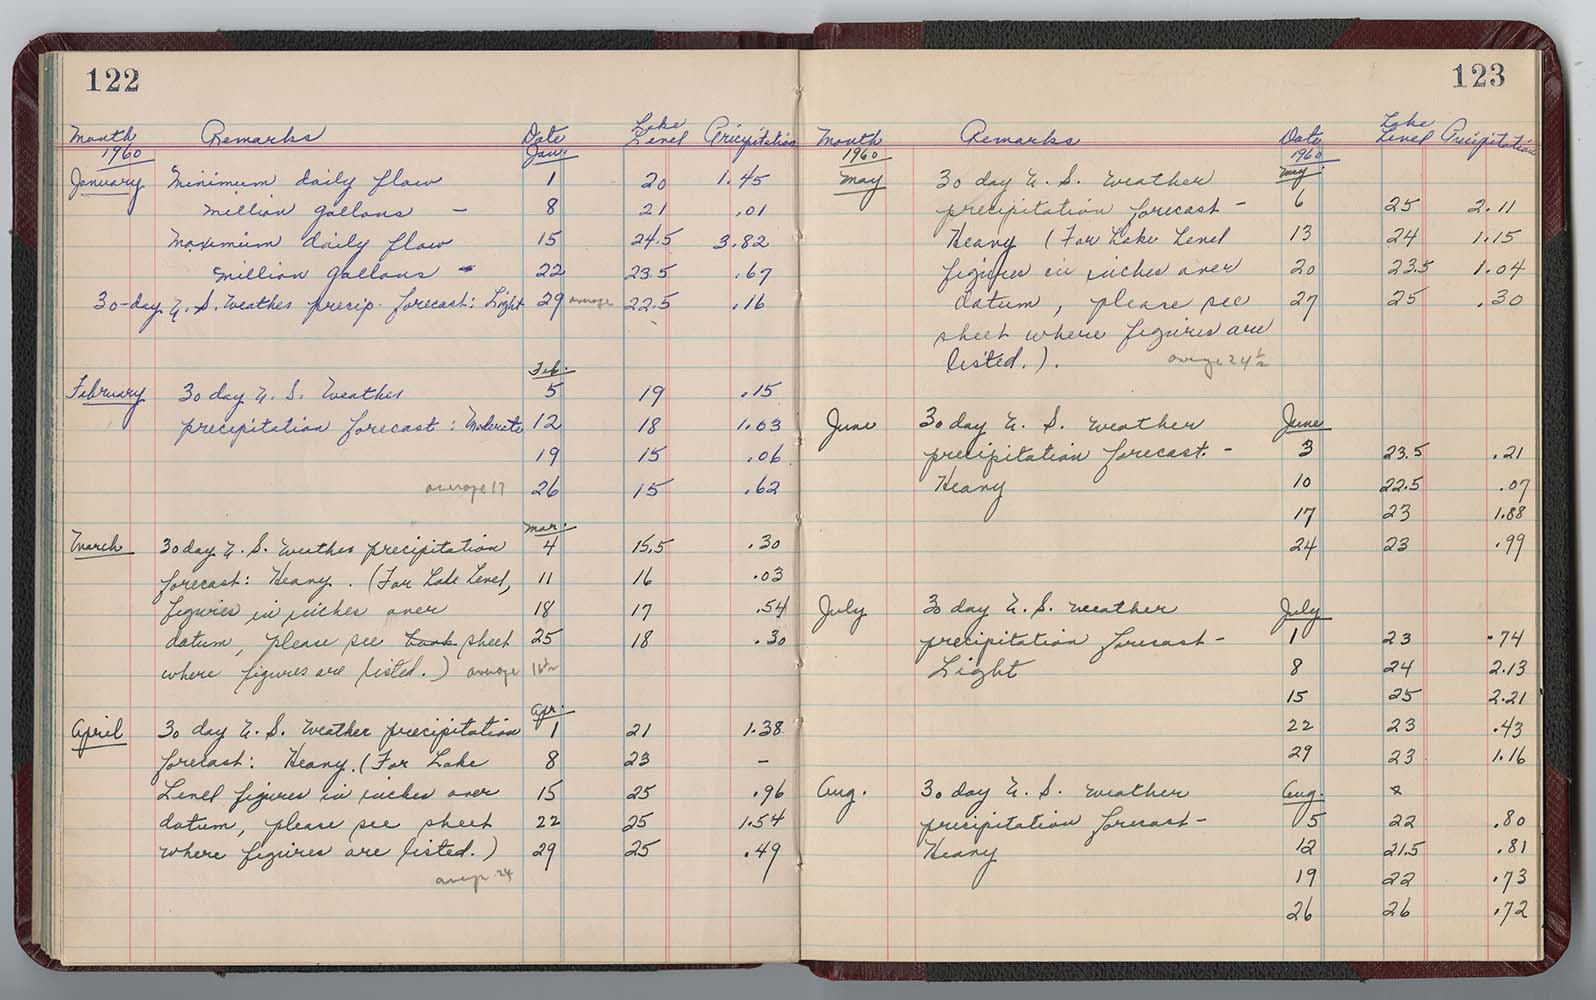 122
Month Remarks Date Lake Level Precipitation
1960 Jan.
January Minimum daily flow 1 20 1.45
million gallons – 8 21 .01
Maximum daily flow 15 24.5 3.82
million gallons - 22 23.5 .67
30-day U. S. Weather precip. forecast: Light 29 average 22.5 .16
Feb.
February 30 day U. S. Weather 5 19 .15
precipitation forecast: Moderate 12 18 1.03
19 15 .06
average 17 26 15 .62
Mar.
March 30 day U. S. Weather precipitation 4 15.5 .30
forecast: Heavy. (For Lake Level, 11 16 .03
figures in inches over 18 17 .54
datum, please see book sheet 25 18 .30
where figures are listed.) average
Apr.
April 30 day U. S. Weather precipitation 1 21 1.38
forecast: Heavy. (For Lake 8 23 –
Level figures in inches over 15 25 .96
datum, please see sheet 22 25 1.54
where figures are listed.) 29 25 .49
24
123
Month Remarks Date Lake Level Precipitation
1960 1960
May 30 day U. S. Weather May
precipitation forecast – 6 25 2.11
Heavy (For Lake Level 13 24 1.15
figures in inches over 20 23.5 1.04
datum, please see 27 25 .30
sheet where figures are
listed.). 24 1/2
June 30 day U. S. Weather June
precipitation forecast. – 3 23.5 .21
Heavy 10 22.5 .07
17 23 1.88
24 23 .99
July 30 day U. S. Weather July
precipitation forecast – 1 23 .74
Light 8 24 2.13
15 25 2.21
22 23 .43
29 23 1.16
Aug. 30 day U. S. Weather Aug.
precipitation forecast – 5 22 .80
Heavy 12 21.5 .81
19 22 .73
26 26 .72